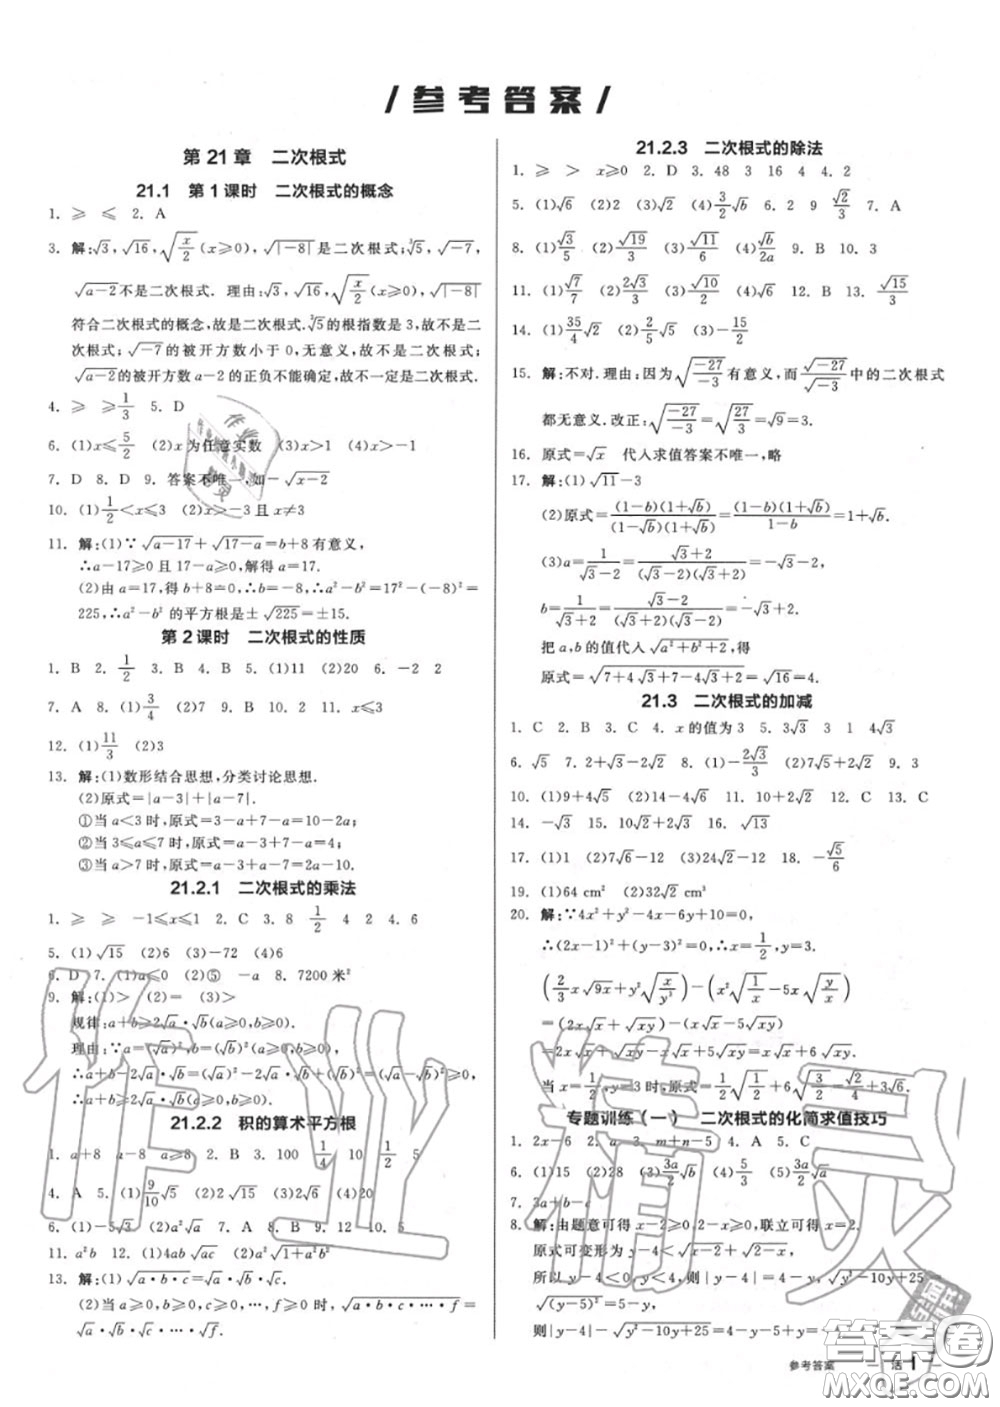 参考答案
第 21 章 二次根式
21.1 第 1 课时 二次根式的概念
1. ≥ ≤ 2. A
3. 解:√3,√16,√(x/2)(x≥0),√|-8|是二次根式.∛5,√-7,
√a-2不是二次根式. 理由:√3,√16,√(x/2)(x≥0),√|-8|
符合二次根式的概念,故是二次根式.∛5的根指数是3,故不是二
次根式;√-7的被开方数小于0,无意义,故不是二次根式;
√a-2的被开方数a-2的正负不能确定,故不是二次根式.
4. ≥ ≥1/3 5. D
6. (1)x≤5/2 (2)x为任意实数 (3)x>1 (4)x>-1
7. D 8. D 9. 答案不唯一,如-√x
10. (1)1/2<x≤3 (2)x>-3且x≠3
11. 解:(1)∵√a-17+√17-a=b+8有意义,
∴a-17≥0且17-a≥0,解得a=17.
(2)由a=17,得b+8=0,∴b=-8,∴a²-b²=17²-(-8)²=
225,∴a²-b²的平方根是±√225=±15.
第 2 课时 二次根式的性质
1. B 2. 1/2 3. B 4. B 5. (1)11 (2)20 6. -2 2
7. A 8. (1)3/4 (2)7 9. B 10. 2 11. x≤3
12. (1)11/3 (2)3
13. 解:(1)数形结合思想,分类讨论思想.
(2)原式=|a-3|+|a-7|.
①当a<3时,原式=3-a+7-a=10-2a;
②当3≤a≤7时,原式=a-3+7-a=4;
③当a>7时,原式=a-3+a-7=2a-10.
21.2.1 二次根式的乘法
1. ≥ ≥ -1≤x≤1 2. C 3. 8 1/2 4. 2 4. 6
5. (1)√15 (2)6 (3)-72 (4)6
6. D 7. (1)a≤0 (2)⑤ -a 8. 7200米²
9. 解:(1)> (2)= (3)>
规律:a+b≥2√a·√b(a≥0,b≥0).
理由:∵a+b-2√a·√b=(√a)²-2√a·√b+(√b)²=(√a-√b)²≥0,
∴a+b≥2√a·√b(a≥0,b≥0).
21.2.2 积的算术平方根
1. a+8 a-8 a≥8 2. B 3. 100 1/4 10 1/2 5
4. A 5. (1)9/10√5 (2)2√15 (3)3√3
6. (1)-5√3 (2)a²√a 7. A 8. B 9. 12 10. 5
11. a²b 12. (1)4ab√ac (2)a²√1+a²b²
13. 解:(1)√a·b·c=√a·√b·√c
(2)当a≥0,b≥0,c≥0,…,f≥0时,√a·b·c·…·f=
√a·√b·√c·…·√f.
21.2.3 二次根式的除法
1. ≥ > x≥0 2. D 3. 48 3 16 4. 2
5. (1)√6 (2)2 (3)√2 (4)3/2√b 6. 2 9 √2/3 7. A
8. (1)√3/5 (2)√19/3 (3)√11/6 (4)√b/2a 9. B 10. 3
11. (1)√7/7 (2)2√3/3 (3)√10/2 12. B 13. √15/3
14. (1)35/4√2 (2)2/5√5 (3)-15/2
15. 解:不对.理由:因为√(-27/-3)有意义,而√-27/√-3中的二次根式
都无意义.改正:√(-27/-3)=√(27/3)=√9=3.
16. 原式=√x 代入求值答案不唯一,略
17. 解:(1)√11-3
(2)原式=(1-b)(1+√b)/(1-√b)(1+√b)=(1-b)(1+√b)/1-b=1+√b.
(3)a=1/(√3-2)=(√3+2)/(√3-2)(√3+2)=-√3-2,
b=1/(√3+2)=(√3-2)/(√3+2)(√3-2)=-√3+2.
把a,b的值代入√a²+b²+2,得
原式=√7+4√3+7-4√3+2=√16=4.
21.3 二次根式的加减
1. C 2. B 3. C 4. x的值为3 5. 3√3 3 1 4√3
6. √5 7. 2+√3 8. (1)-2√3/3 (2)7√5+√2 9. B
10. (1)9+4√5 (2)14-4√6 11. 10√2 12. C 13. C
14. -√3 15. 10√2+2√3 16. √13
17. (1)1 (2)7√6-12 (3)24√3-12 18. -√5/6
19. (1)64 cm² (2)32√2 cm²
20. 解:∵4x²+y²-4x-6y+10=0,
∴(2x-1)²+(y-3)²=0,∴x=1/2,y=3.
(2/3x√9x+y²√(x/y³))-(x²√(1/x)-5x√(y/x))
=(2x√x+√xy)-(x√x-5√xy)
=2x√x+√xy-x√x+5√xy=x√x+6√xy.
当x=1/2,y=3时,原式=1/2√(1/2)+6√(3/2)=√2/4+3√6.
专题训练(一) 二次根式的化简求值技巧
1. 2x-6 2. a 3. m+n-5 4. A 5. C
6. (1)15 (2)28 (3)3a/b√a (4)5/3 (5)
7. 3a+b-c
8. 解:由题意可得x-2≥0,2-x≥0,联立可得x=2.
原式可变形为y-4<√x-2+√2-x+2=2,
所以y-4<0,y<4,则|y-4|=4-y,√y²-10y+25
=√(y-5)²=5-y,
则|y-4|-√y²-10y+25=4-y-(5-y)=-1.
参考答案 活 1
作业精灵
答案圈
MXQE.COM